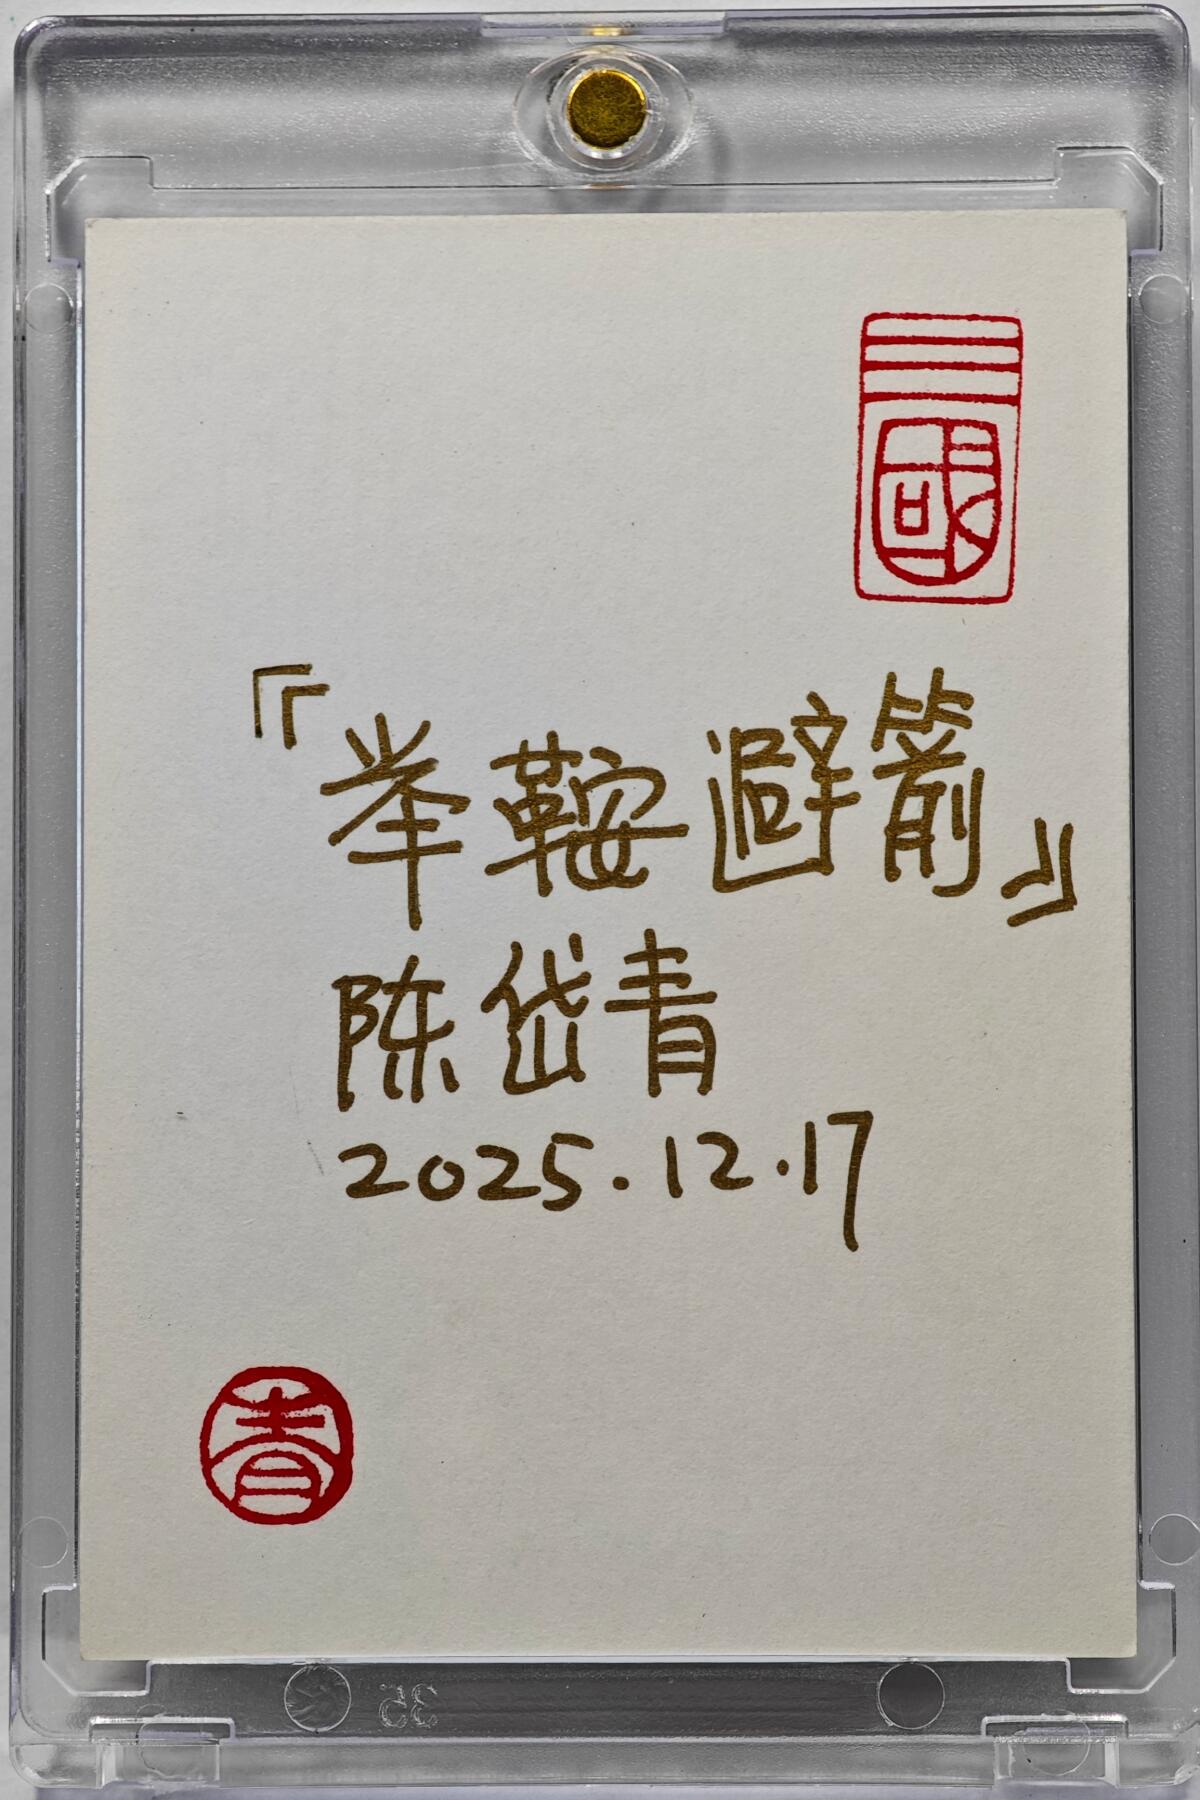 三國
『举鞍避箭』
陈岱青
2025.12.17
青
35